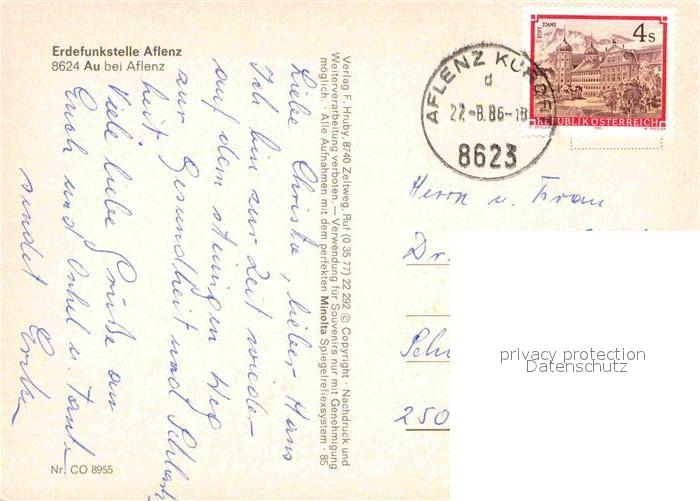 Erdefunkstelle Aflenz
8624 Au bei Aflenz
Liebe Christa, lieber Hans
Ich bin zur Zeit wieder
auf dem steinigen Weg
zur Gesundheit und Schlank-
heit.
Viele liebe Grüße an
Euch und Onkel u. Tante
sendet Erika
Verlag F. Hruby, 8740 Zeltweg, Ruf (0 35 77) 22 292 © Copyright · Nachdruck und
Weiterverarbeitung verboten. — Verwendung für Souvenirs nur mit Genehmigung
möglich · Alle Aufnahmen mit dem perfekten Minolta Spiegelreflexsystem · 85
Nr. CO 8955
AFLENZ KURORT
d
22.-8.86-18
8623
STIFT STAMS
4 S
REPUBLIK ÖSTERREICH
Herrn u. Frau
Dr.
250
privacy protection
Datenschutz